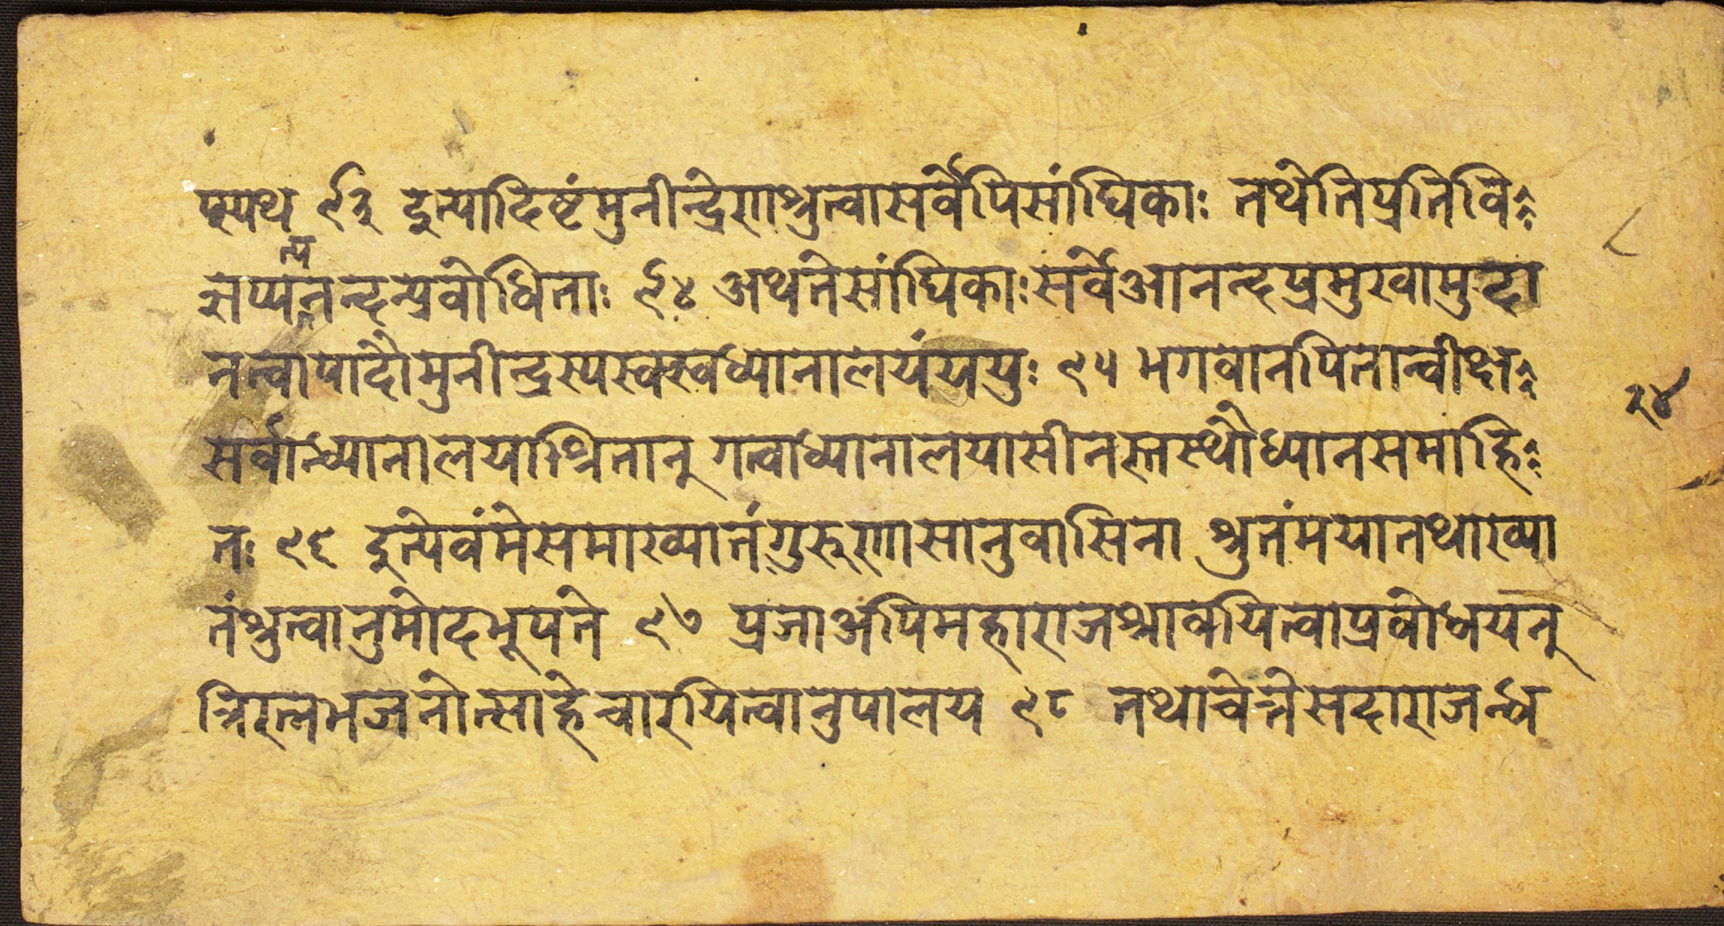 प्स्यथ ९३ इत्यादिष्टंमुनीन्द्रेणश्रुत्वासर्वेपिसांघिकाः तथेतिप्रतिवि
त्य
ज्ञप्यनन्दन्प्रवोधिताः ९४ अथतेसांघिकाःसर्वेआनन्दप्रमुखामुदा
नत्वापादौमुनीन्द्रस्यस्वस्वध्यानालयंययुः ९५ भगवानपितान्वीक्ष
सर्वान्ध्यानालयाश्रितान् गत्वाध्यानालयासीनस्तस्थौध्यानसमाहि
तः ९६ इत्येवंमेसमाख्यातंगुरुणासानुवासिना श्रुतंमयातथाख्या
तंश्रुत्वानुमोदभूपते ९७ प्रजाअपिमहाराजश्रावयित्वाप्रवोधयन्
त्रिरत्नभजनोत्साहेचारयित्वानुपालय ९८ तथाचेत्तेसदाराजन्ध
२४